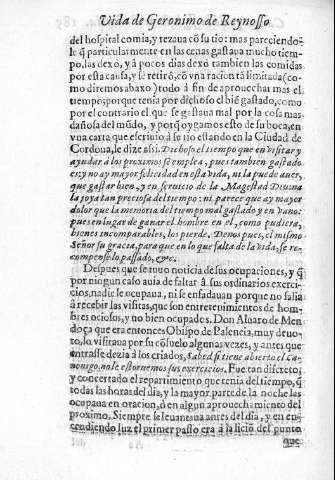 Vida de Geronimo de Reynoſſo
del hospital comia, y rezaua cõ ſu tio: mas pareciendo-
le q̃ particularmente en las cenas gaſtaua mucho tiem-
po, las dexò, y à pocos dias dexò tambien las comidas
por eſta cauſa, y ſe retirò, cõ vna racion tã limitada (co-
mo diremos abaxo) todo à fin de aprouechar mas el
tiempo; porque tenia por dichoſo el biẽ gaſtado, como
por el contrario el que ſe gaſtaua mal por la coſa mas
dañoſa del mũdo, y porq̃ oygamos eſto de ſu boca, en
vna carta que eſcriuiò à ſu tio eſtando en la Ciudad de
Cordoua, le dize aſsi. Dichoſo el tiempo que en viſitar y
ayudar à los proximos ſe emplea, pues tambien gaſtado
es: y no ay mayor felicidad en eſta vida, ni la puede auer,
que gaſtar bien, y en ſeruicio de la Mageſtad Diuina
la joya tan precioſa del tiempo: ni parece que ay mayor
dolor que la memoria del tiempo mal gaſtado y en vano:
pues en lugar de ganar el hombre en el, como pudiera,
bienes incomparables, los pierde. Denos pues, el miſmo
Señor ſu gracia, para que en lo que falta de la vida, ſe re-
compenſe lo paſſado, &c.
Deſpues que ſe tuuo noticia de ſus ocupaciones, y q̃
por ningun caſo auia de faltar à ſus ordinarios exerci-
cios, nadie le ocupaua, ni ſe enfadauan porque no ſalia
à recebir las viſitas, que ſon entretenimientos de hom-
bres ocioſos, y no bien ocupados. Don Aluaro de Men
doça que era entonces Obiſpo de Palencia, muy deuo-
to, lo viſitaua por ſu cõſuelo algunas vezes, y antes que
entraſſe dezia à los criados, Sabed ſi tiene abierto el Ca-
nonigo, no le eſtoruemos ſus exercicios. Fue tan diſcreto,
y concertado el repartimiento que tenia del tiempo, q̃
todas las horas del dia, y la mayor parte de la noche las
ocupaua en oracion, ò en algun aprouechamiento del
proximo. Siempre ſe leuantaua antes del dia, y en en-
cendiendo luz el primer paſſo era à la liciõ del punto
que